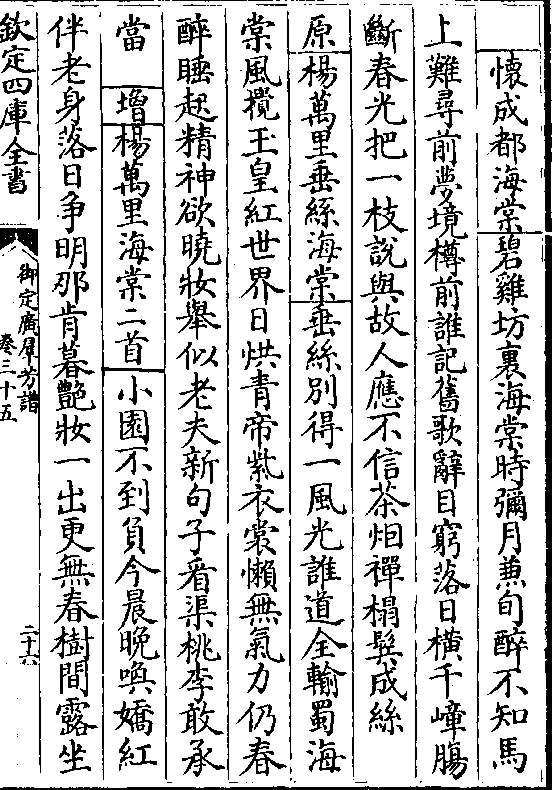 懐成都海棠碧雞坊裏海棠時彌月兼旬醉不知馬
上難尋前夢境樽前誰記舊歌辭目窮落日橫千嶂腸
斷春光把一枝說與故人應不信茶烟禪榻鬂成絲
原楊萬里垂絲海棠垂絲别得一風光誰道全輸蜀海
棠風攪玉皇紅世界日烘青帝紫衣裳懶無氣力仍春
醉睡起精神欲曉妝舉似老夫新句子看渠桃李敢承
當 增楊萬里海棠二首小園不到負今晨晚喚嬌紅
伴老身落日争明那肯暮艶妝一出更無春樹間露坐
欽定四庫全書
御定廣羣芳譜
卷三十五
二十六